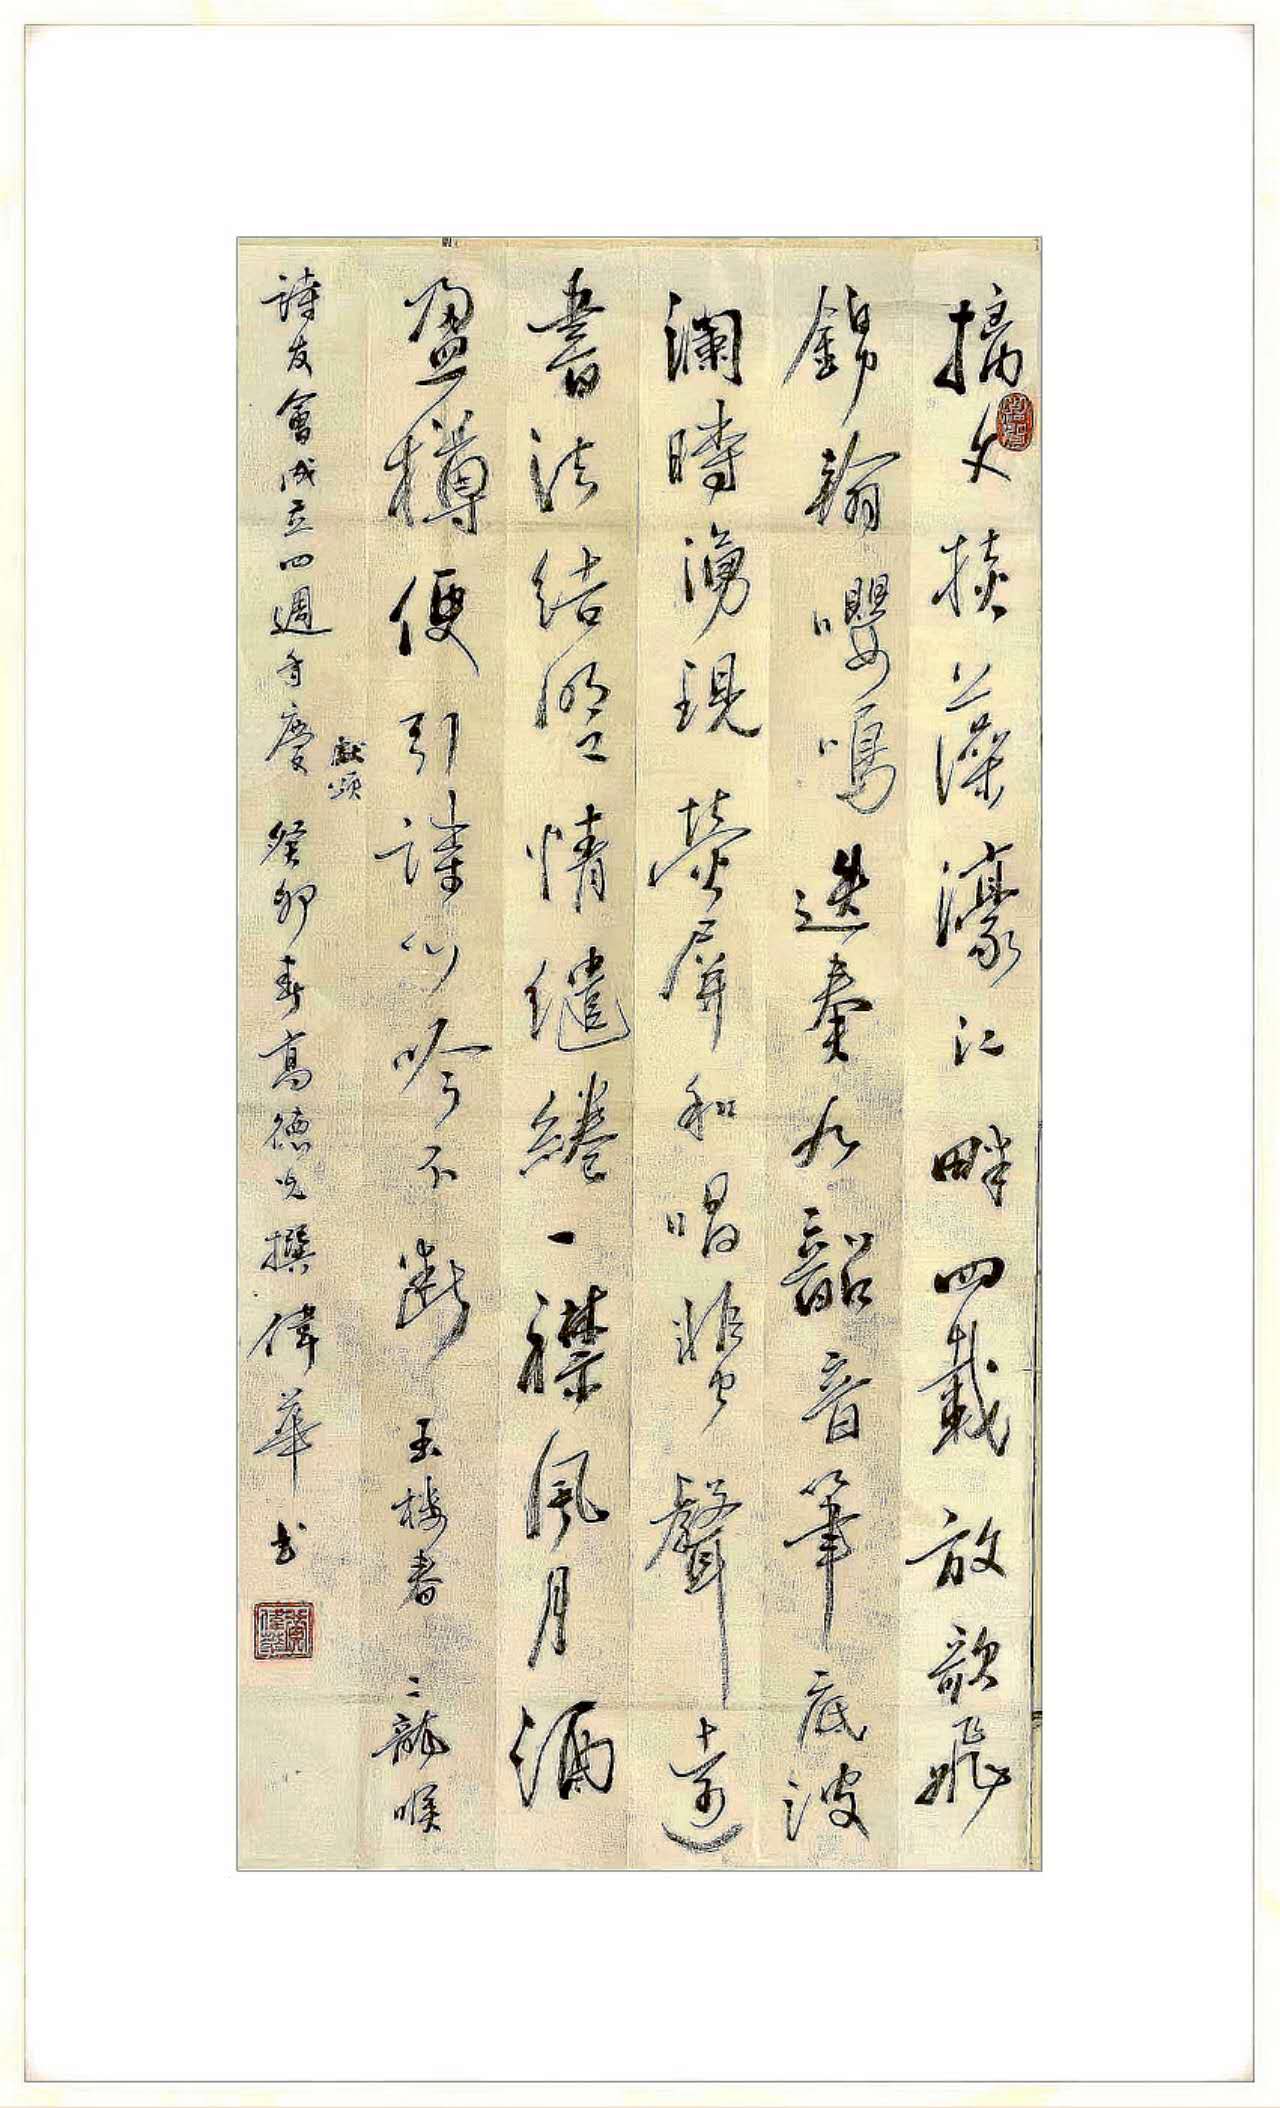 摛文掞藻濠江畔四載放歌飛
錦翰嚶鳴迭奏九韶音筆底波
瀾時湧現 熒屏和唱蜚聲遠
書法結盟情繾綣一襟風月酒
盈樽便引詩心吟不斷 玉樓春 二龍喉
詩友會成立四週年慶 獻頌 癸卯春高德光撰 偉華书